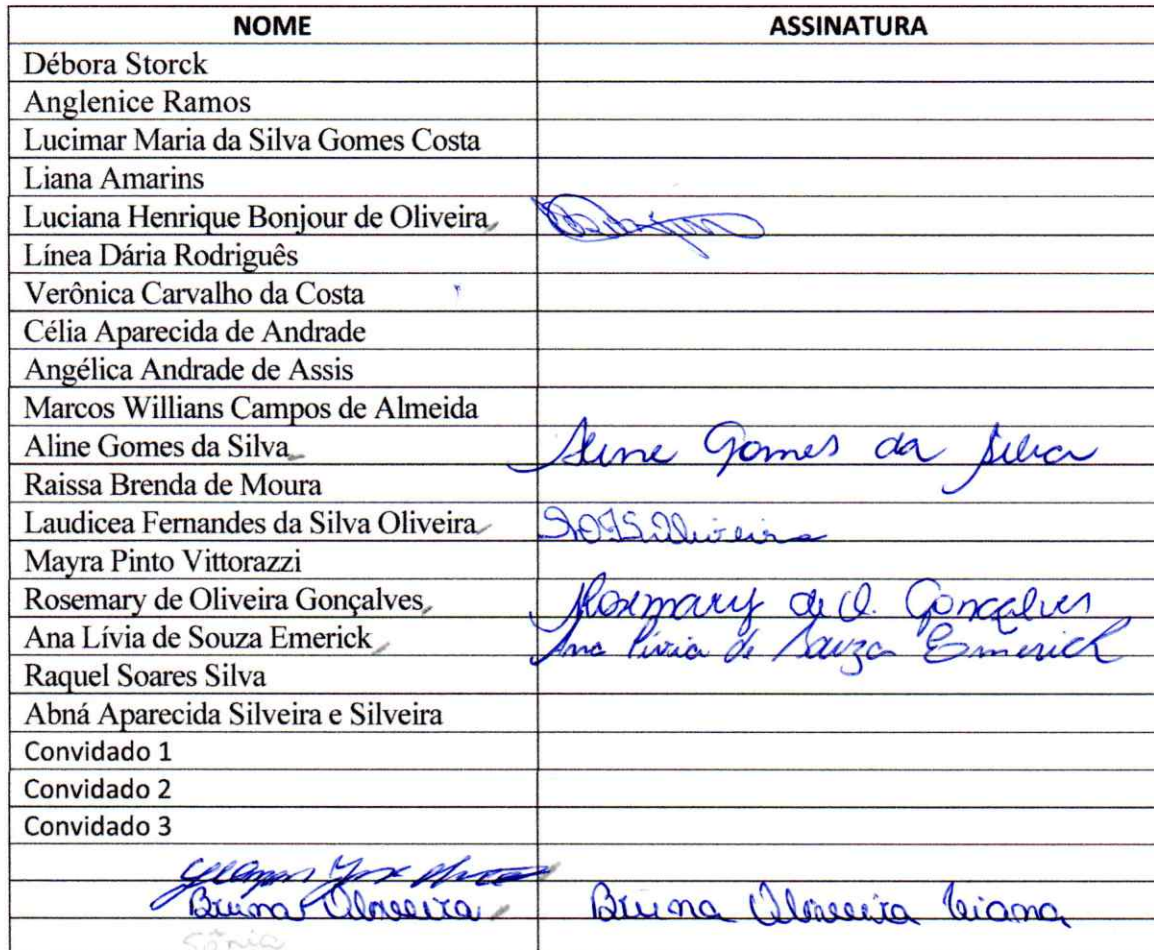 NOME ASSINATURA
Débora Storck
Anglenice Ramos
Lucimar Maria da Silva Gomes Costa
Liana Amarins
Luciana Henrique Bonjour de Oliveira
Línea Dária Rodriguês
Verônica Carvalho da Costa
Célia Aparecida de Andrade
Angélica Andrade de Assis
Marcos Willians Campos de Almeida
Aline Gomes da Silva Aline Gomes da Silva
Raissa Brenda de Moura
Laudicea Fernandes da Silva Oliveira Oliveira
Mayra Pinto Vittorazzi
Rosemary de Oliveira Gonçalves Rosemary de O. Gonçalves
Ana Lívia de Souza Emerick Ana Lívia de Souza Emerick
Raquel Soares Silva
Abná Aparecida Silveira e Silveira
Convidado 1
Convidado 2
Convidado 3
Bruna Oliveira Bruna Oliveira Viana
Sônia